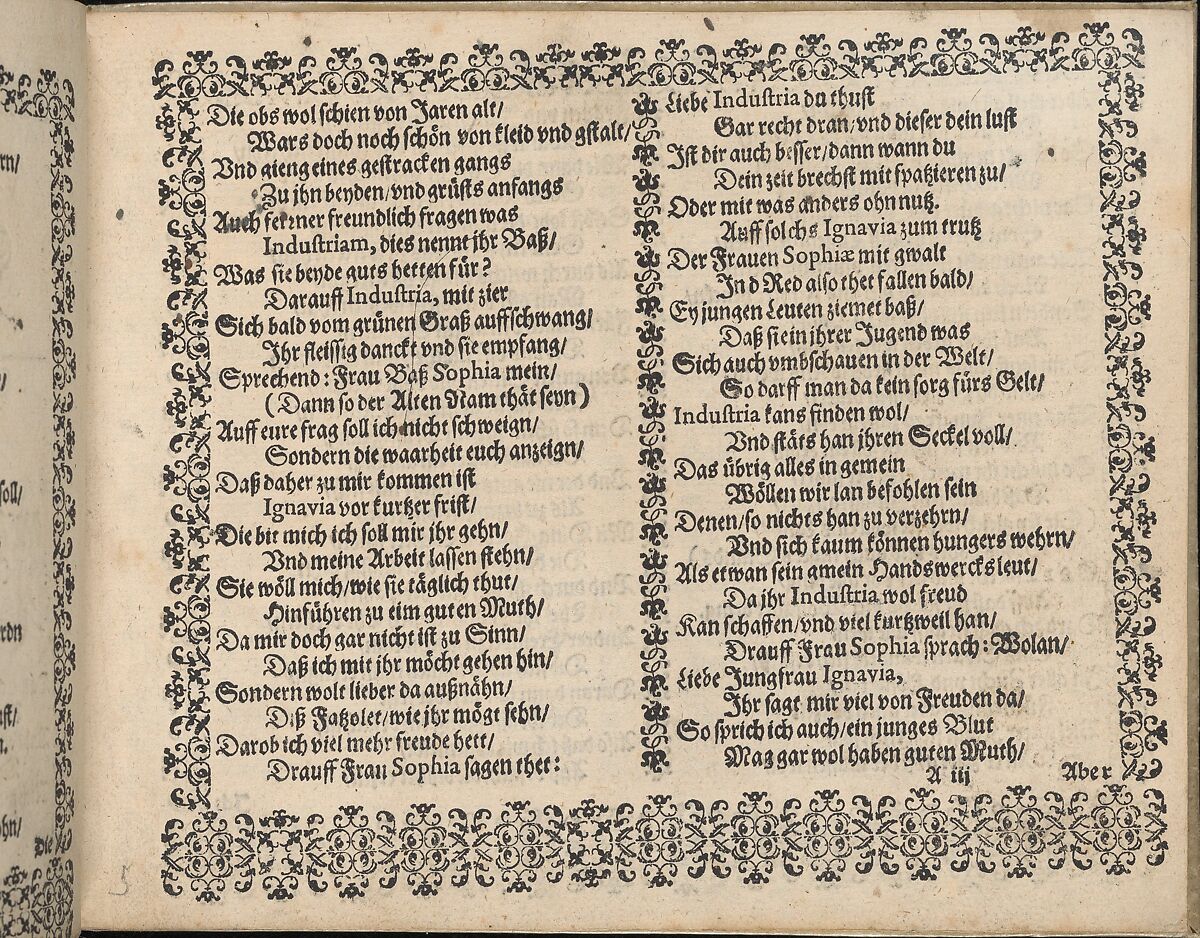 Die obs wol schien von Jaren alt/
Wars doch noch schön von kleid vnd gstalt/
Vnd gieng eines gestracken gangs
Zu jhn beyden/vnd grüsts anfangs
Auch ferrner freundlich fragen was
Industriam, dies nennt jhr Baß/
Was sie beyde guts hetten für?
Darauff Industria, mit zier
Sich bald vom grünen Graß auffschwang/
Jhr fleissig danckt vnd sie empfang/
Sprechend: Frau Baß Sophia mein/
(Dann so der Alten Nam thät seyn)
Auff eure frag soll ich nicht schweign/
Sondern die waarheit euch anzeign/
Daß daher zu mir kommen ist
Ignavia vor kurtzer frist/
Die bit mich ich soll mir jhr gehn/
Vnd meine Arbeit lassen stehn/
Sie wöll mich/wie sie täglich thut/
Hinführen zu eim guten Muth/
Da mir doch gar nicht ist zu Sinn/
Daß ich mit jhr möcht gehen hin/
Sondern wolt lieber da außnähn/
Diß Fatzolet/wie jhr mögt sehn/
Darob ich viel mehr freude hett/
Drauff Frau Sophia sagen thet:
Liebe Industria du thust
Gar recht dran/vnd dieser dein lust
Jst dir auch besser/dann wann du
Dein zeit brechst mit spatzieren zu/
Oder mit was anders ohn nutz.
Auff solchs Ignavia zum trutz
Der Frauen Sophiæ mit gwalt
Jn d Red also thet fallen bald/
Ey jungen Leuten ziemet baß/
Daß sie in jhrer Jugend was
Sich auch vmbschauen in der Welt/
So darff man da kein sorg fürs Gelt/
Industria kans finden wol/
Vnd stäts han jhren Seckel voll/
Das übrig alles in gemein
Wöllen wir lan befohlen sein
Denen/so nichts han zu verzehrn/
Vnd sich kaum können hungers wehrn/
Als etwan sein gmein Handswercksleut/
Da jhr Industria wol freud
Kan schaffen/vnd viel kurtzweil han/
Drauff Frau Sophia sprach: Wolan/
Liebe Jungfrau Ignavia,
Jhr sagt mir viel von Freuden da/
So sprich ich auch/ein junges Blut
Mag gar wol haben guten Muth/
A iij
Aber
5
Die